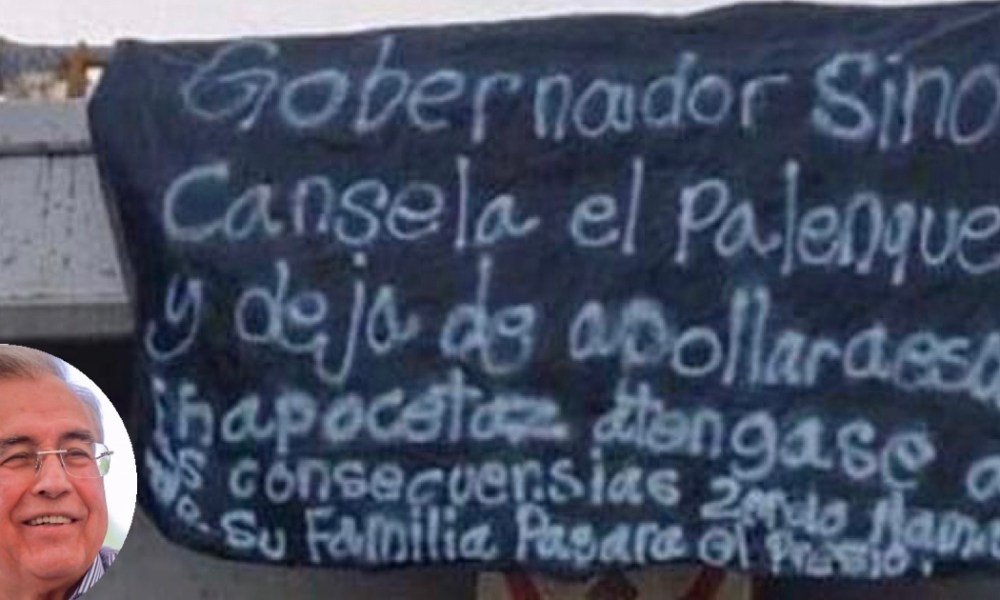 Gobernador Sino
Cansela el Palenque
y deja de apollaraesa
inapoceta atengase a
las consecuensias 2endo llama
Su Familia Pagara el Presio.